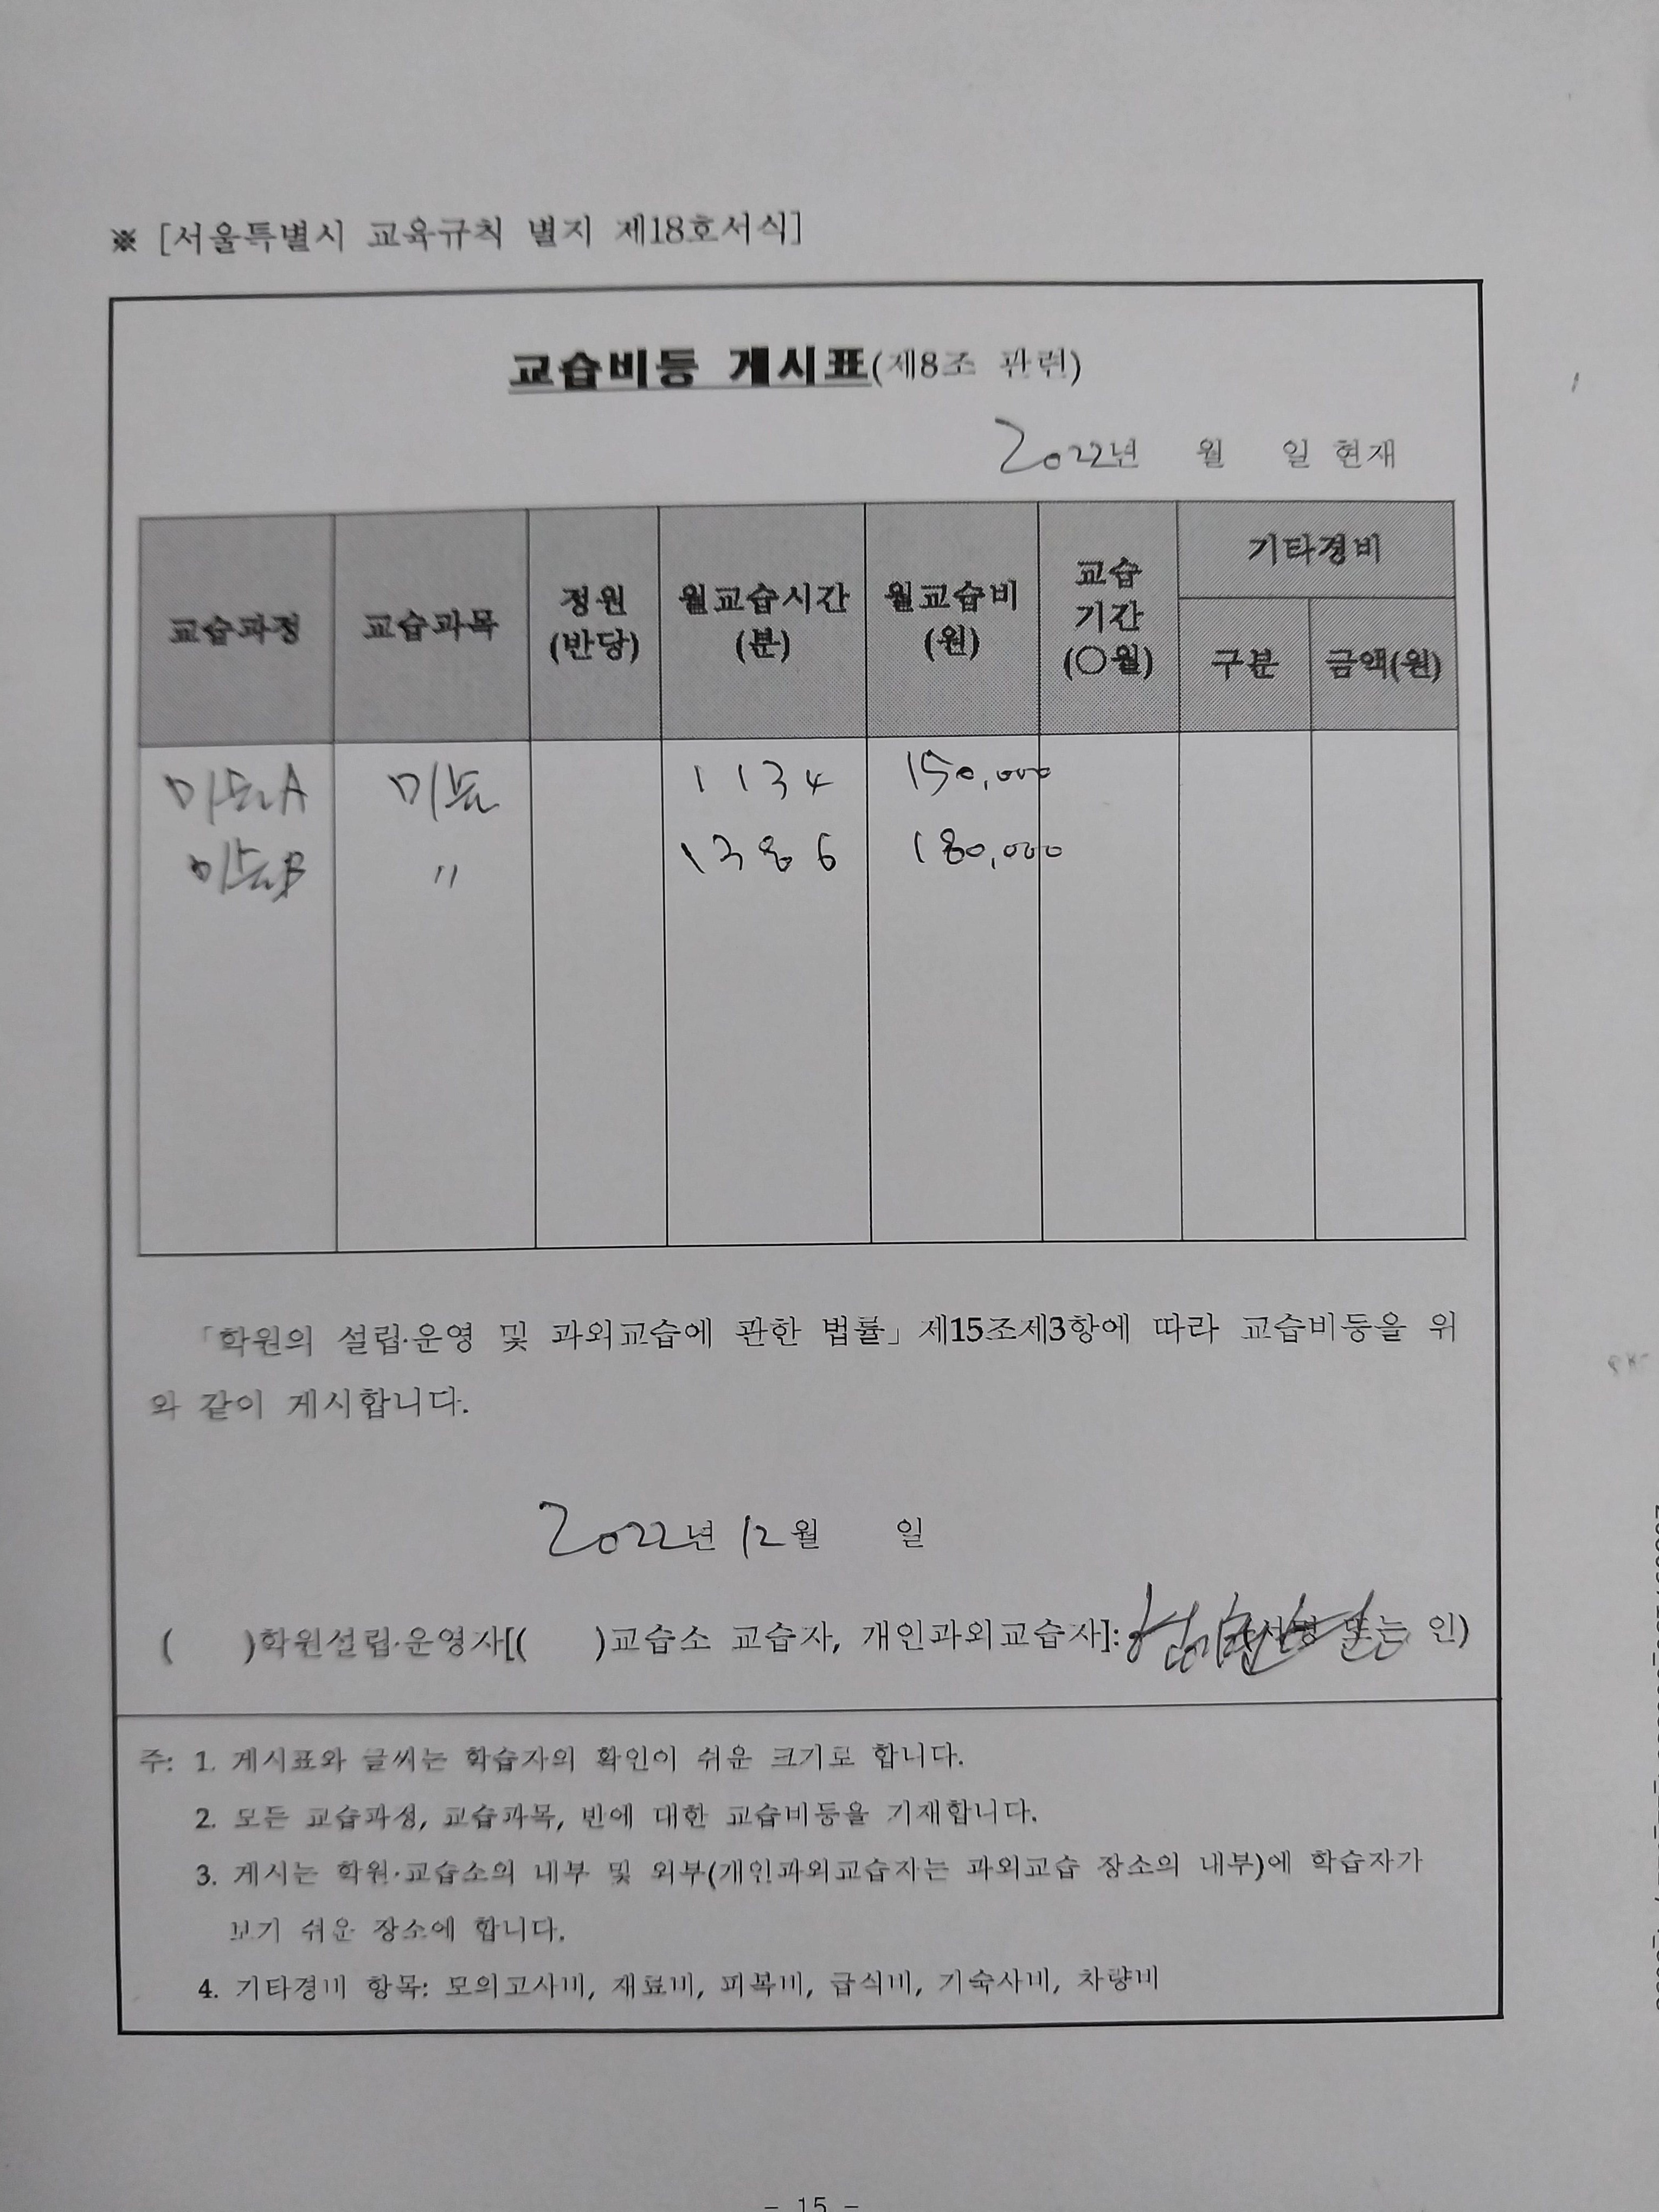 ※ [서울특별시 교육규칙 별지 제18호서식]
교습비등 게시표(제8조 관련)
2022년 월 일 현재
교습과정 교습과목 정원 (반당) 월교습시간 (분) 월교습비 (원) 교습 기간 (○월) 기타경비 구분 금액(원)
미술A 미술 1134 150,000
미술B 〃 1386 180,000
「학원의 설립·운영 및 과외교습에 관한 법률」제15조제3항에 따라 교습비등을 위
와 같이 게시합니다.
2022년 12월 일
( )학원설립·운영자[( )교습소 교습자, 개인과외교습자]: (서명 또는 인)
주: 1. 게시표와 글씨는 학습자의 확인이 쉬운 크기로 합니다.
2. 모든 교습과정, 교습과목, 반에 대한 교습비등을 기재합니다.
3. 게시는 학원·교습소의 내부 및 외부(개인과외교습자는 과외교습 장소의 내부)에 학습자가
보기 쉬운 장소에 합니다.
4. 기타경비 항목: 모의고사비, 재료비, 피복비, 급식비, 기숙사비, 차량비
- 15 -